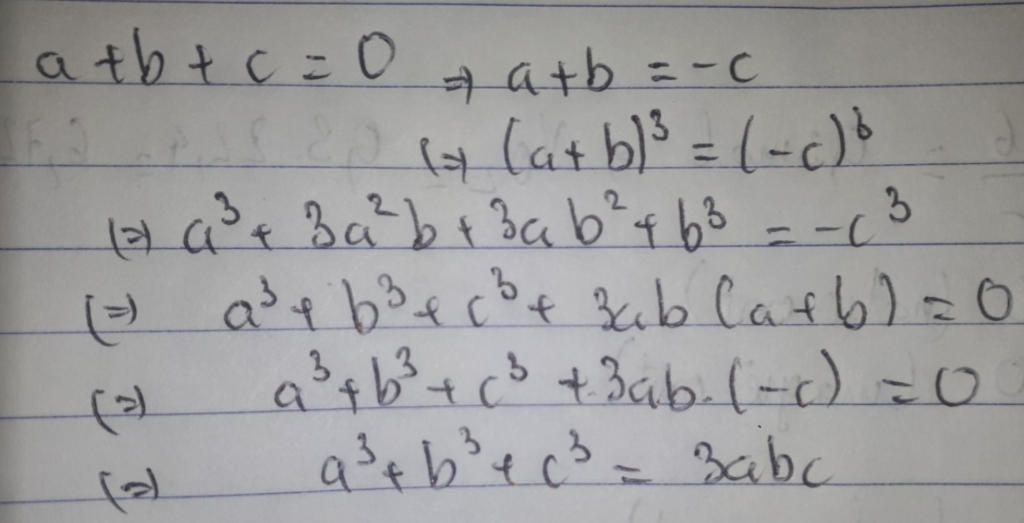 a+b+c=0 ⇒ a+b=-c
(⇒ (a+b)³=(-c)³
(⇒) a³+3a²b+3ab²+b³=-c³
(⇒) a³+b³+c³+3ab(a+b)=0
(⇒) a³+b³+c³+3ab.(-c)=0
(⇒) a³+b³+c³=3abc